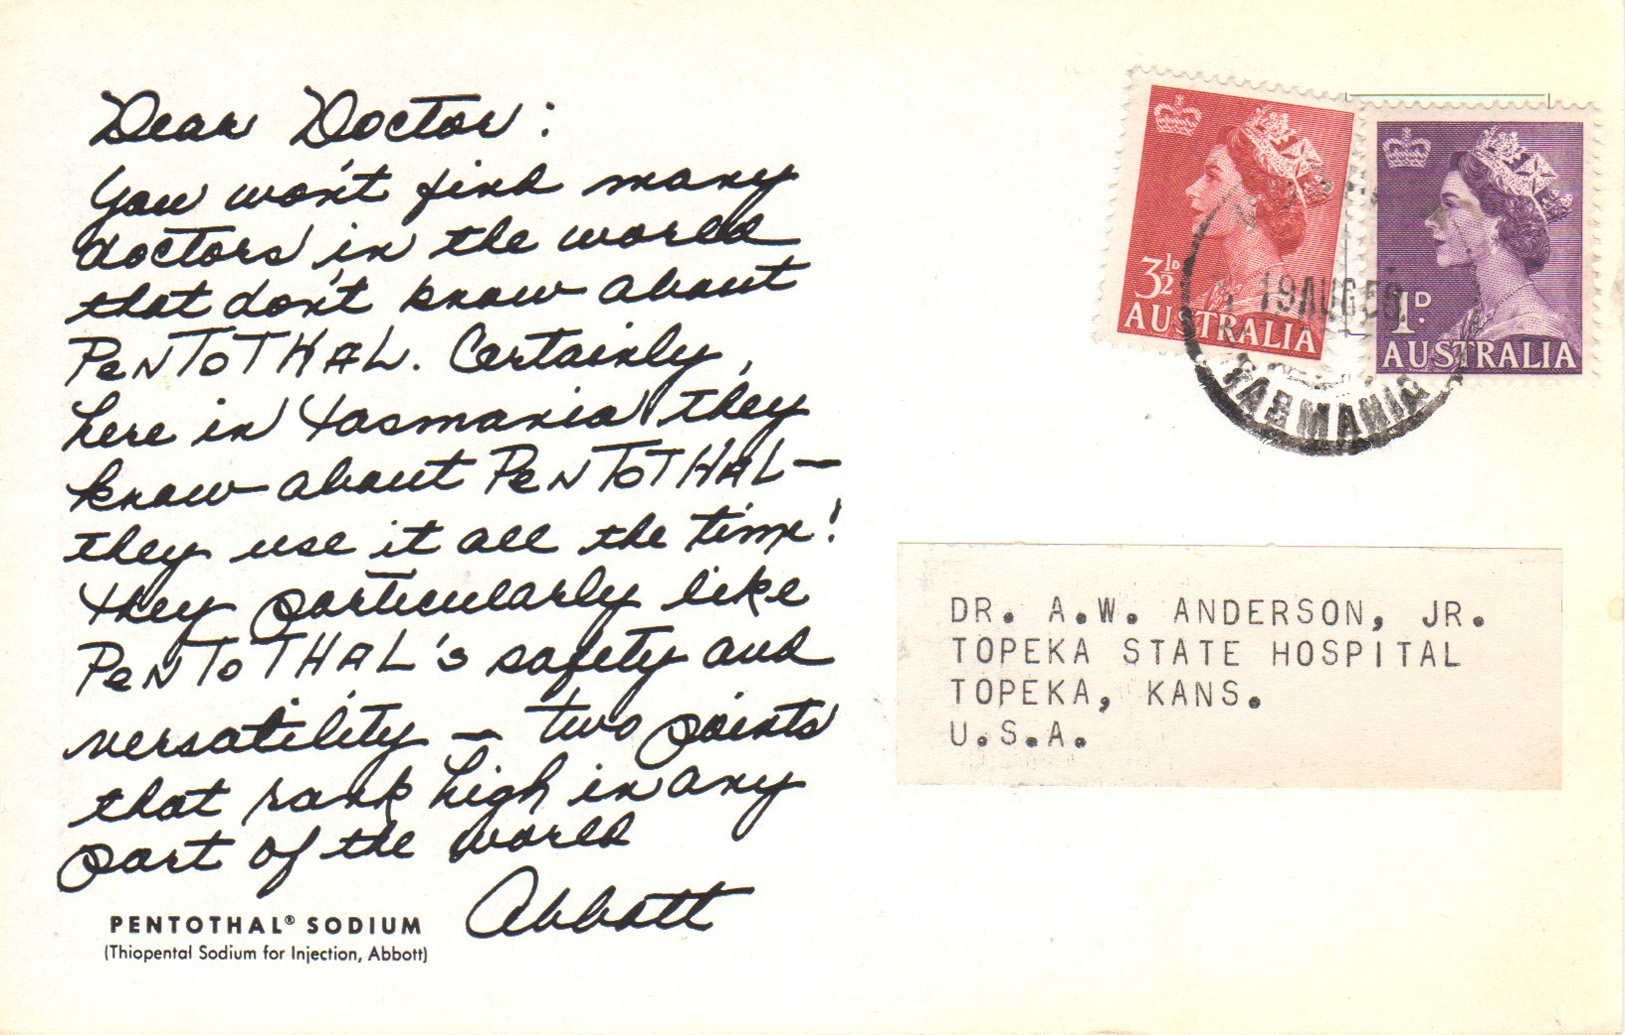 Dear Doctor:
You won't find many
doctors in the world
that don't know about
PeNToTHAL. Certainly,
here in Tasmania they
know about PeNToTHAL—
they use it all the time!
They particularly like
PeNToTHAL's safety and
versatility — two points
that rank high in any
part of the world
Abbott
PENTOTHAL® SODIUM
(Thiopental Sodium for Injection, Abbott)
3½D
AUSTRALIA
1D.
AUSTRALIA
19AUG56
TASMANIA
DR. A.W. ANDERSON, JR.
TOPEKA STATE HOSPITAL
TOPEKA, KANS.
U.S.A.